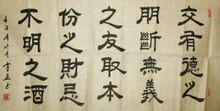 交有德之
朋斷無義
之友取本
份之財忌
不明之酒